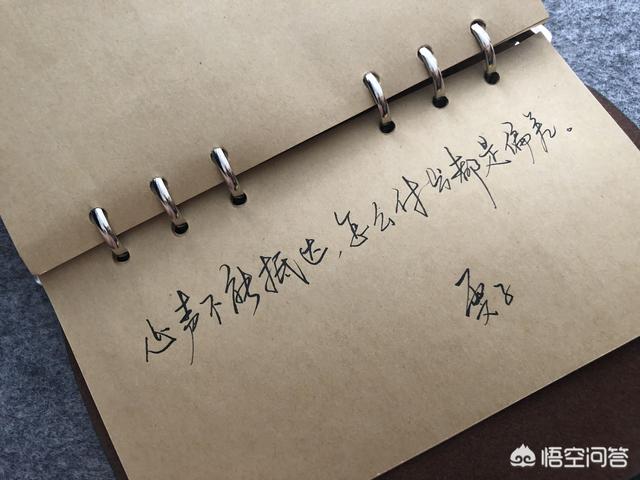 心声不能抵达,怎么什么都是偏差。
夏子
悟空问答